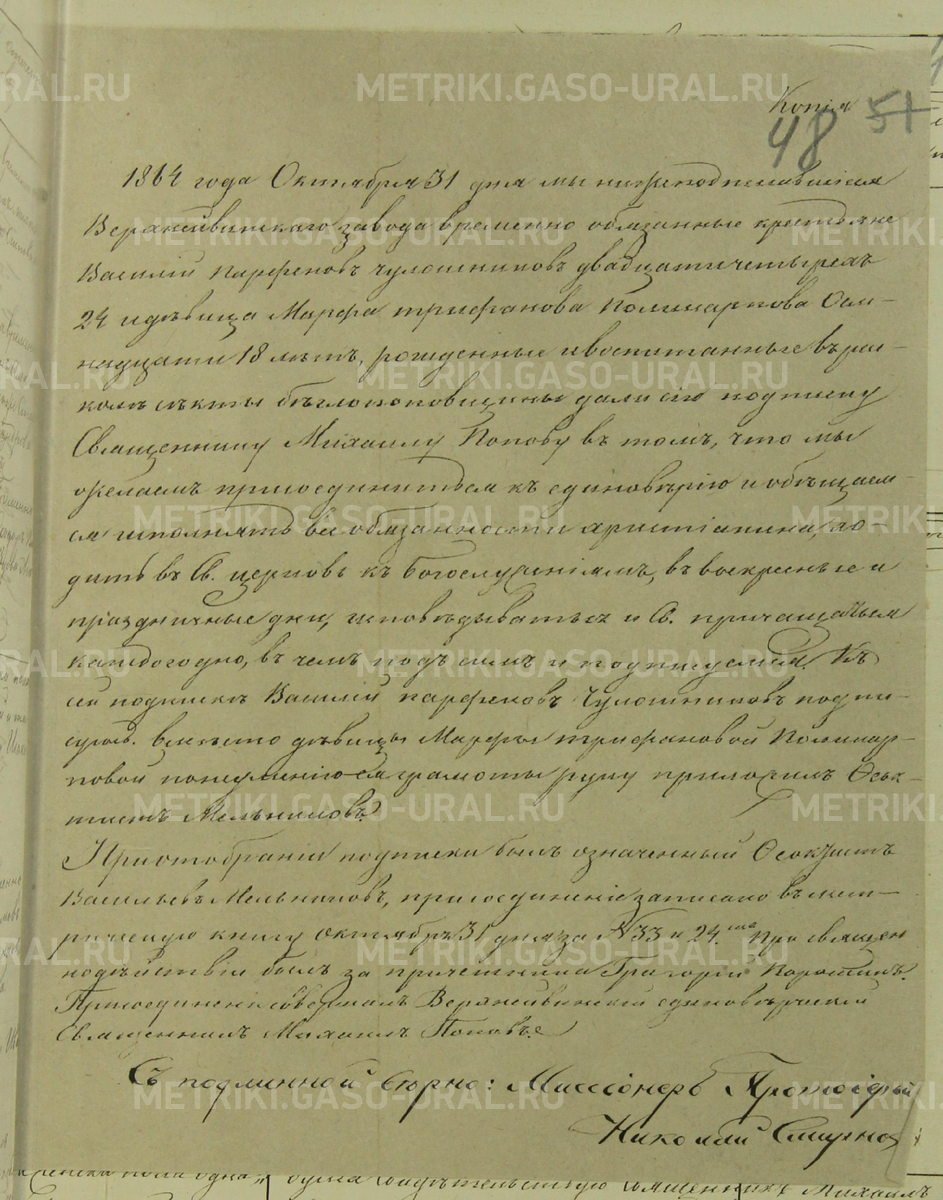 Копія
48 51
1864 года Октября 31 дня мы нижеподписавшіеся
Верхнейвинскаго завода временно обязанные крестьяне
Василій Парфеновъ Чулошниковъ двадцати четырехъ
24 и девица Марфа Трифанова Поликарпова Осм-
надцати 18 летъ, рожденные и воспитанные въ рас-
колъ секты беглопоповщины дали сію подписку
Священнику Михаилу Попову въ томъ, что мы
желаемъ присоединиться къ единоверію и обещаем-
ся исполнять все обязанности христіанина, хо-
дить въ Св. церковь къ богослуженіямъ, въ воскресные и
праздничные дни, исповедываться и Св. причащаться
каждогодно, въ чемъ подъ симъ и подписуемся. Къ
сей подписке Василій Парфеновъ Чулошниковъ подпи-
сувместо девицы Марфы Трифановой Поликар-
повой по неименію ея грамоты руку приложилъ Өеок-
тистъ Мельниковъ.
При отобраніи подписки былъ означенный Өеоктистъ
Васильевъ Мельниковъ, присоединеніе записано въ мет-
рическую книгу октября 31 дня за № 33 и 24. При священ
нодействіи былъ за причетника Григорій Коротинъ.
Присоединеніе совершалъ Верхнейвинскій единоверческій
Священникъ Михаилъ Поповъ.
Съ подлинной верно: Миссіонеръ Протоіерей
Николай Смирнов
METRIKI.GASO-URAL.RU